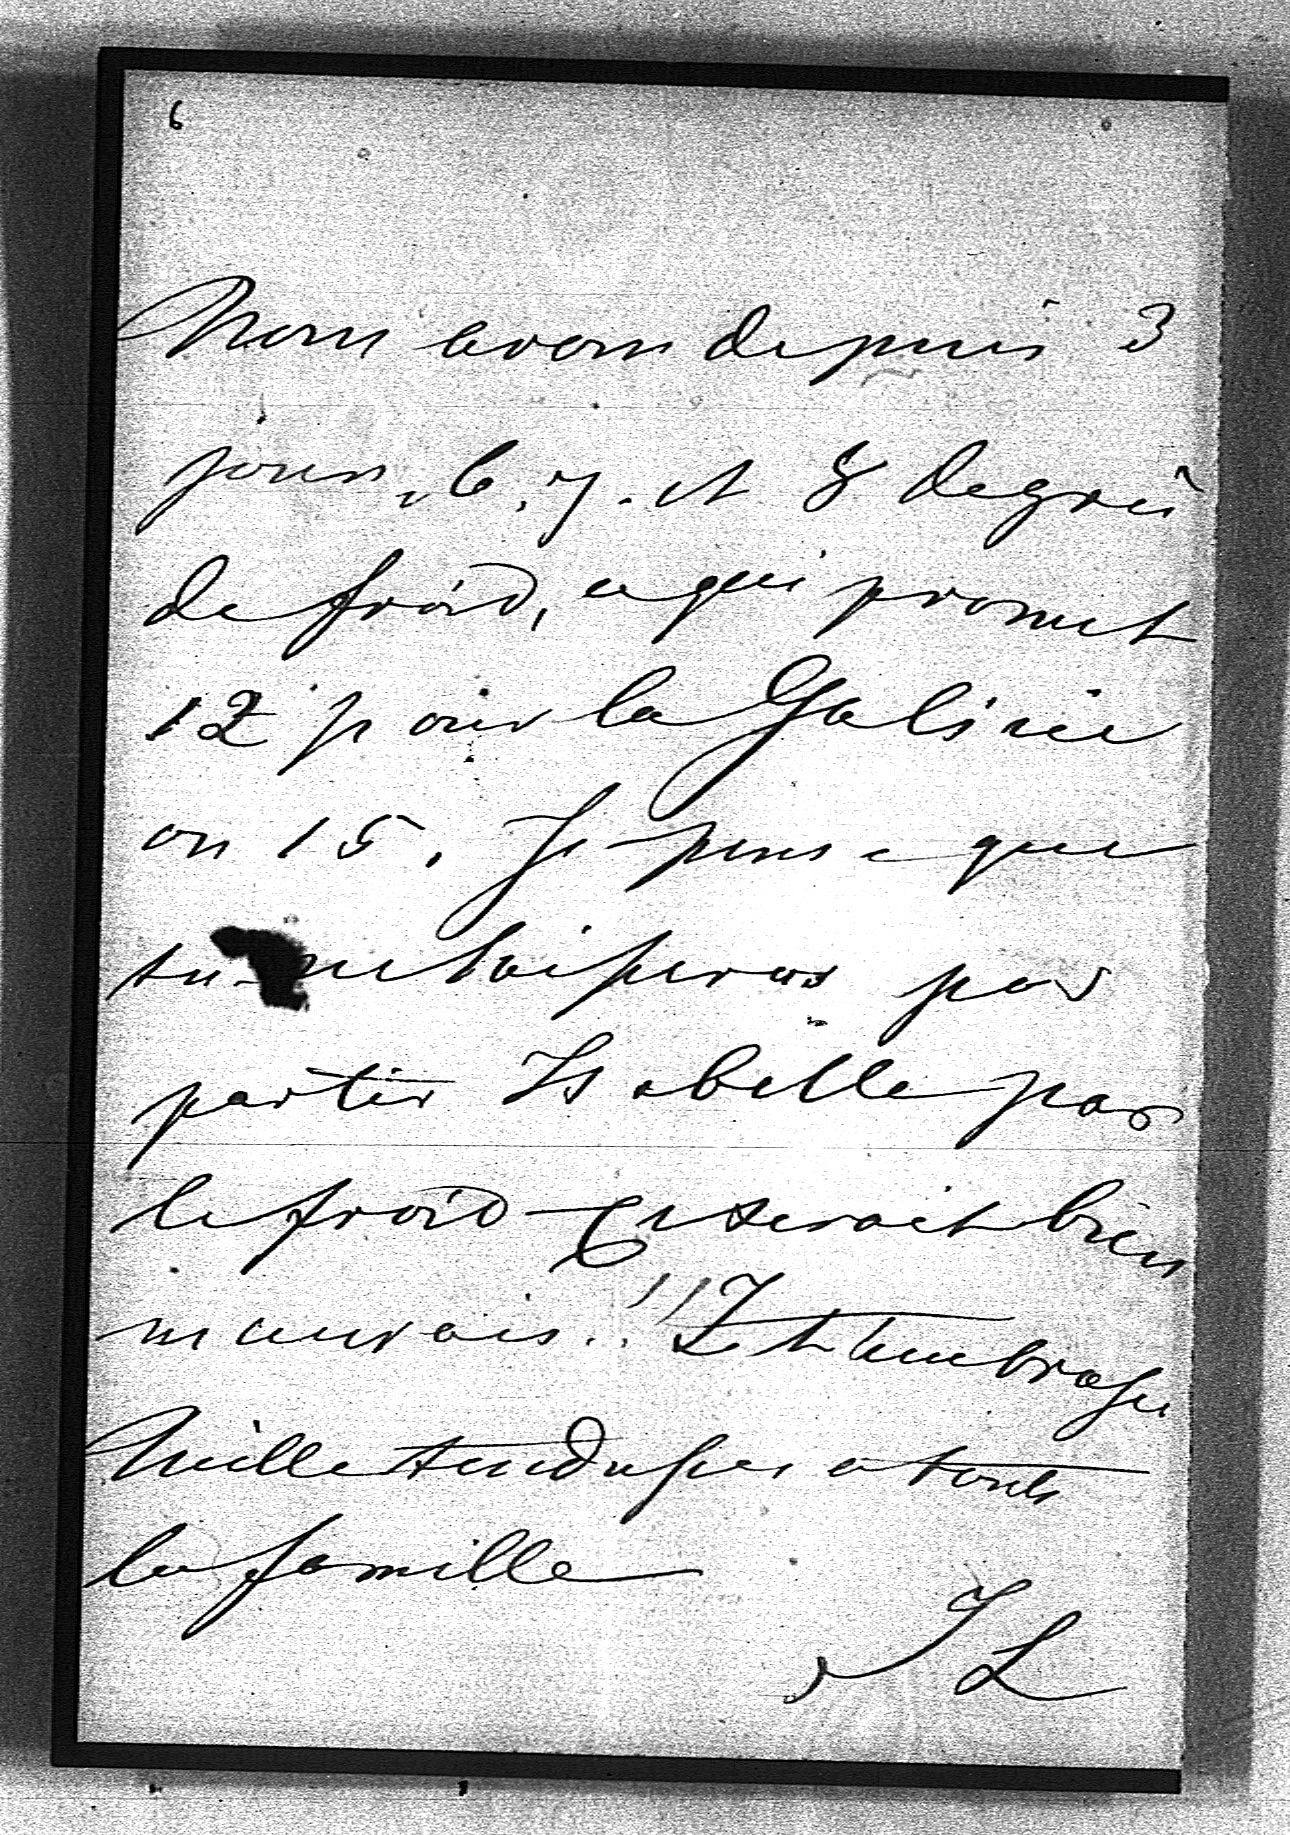 6
Nous avons depuis 3
jours, 6, 7. et 8 degrés
de froid, ce qui promet
12 pour la Galicie
ou 15. Je pense que
tu ne laisseras pas
partir Isabelle par
le froid Ce serait bien
mauvais!! Je t'embrasse
Mille tendresses a toute
la famille
JL